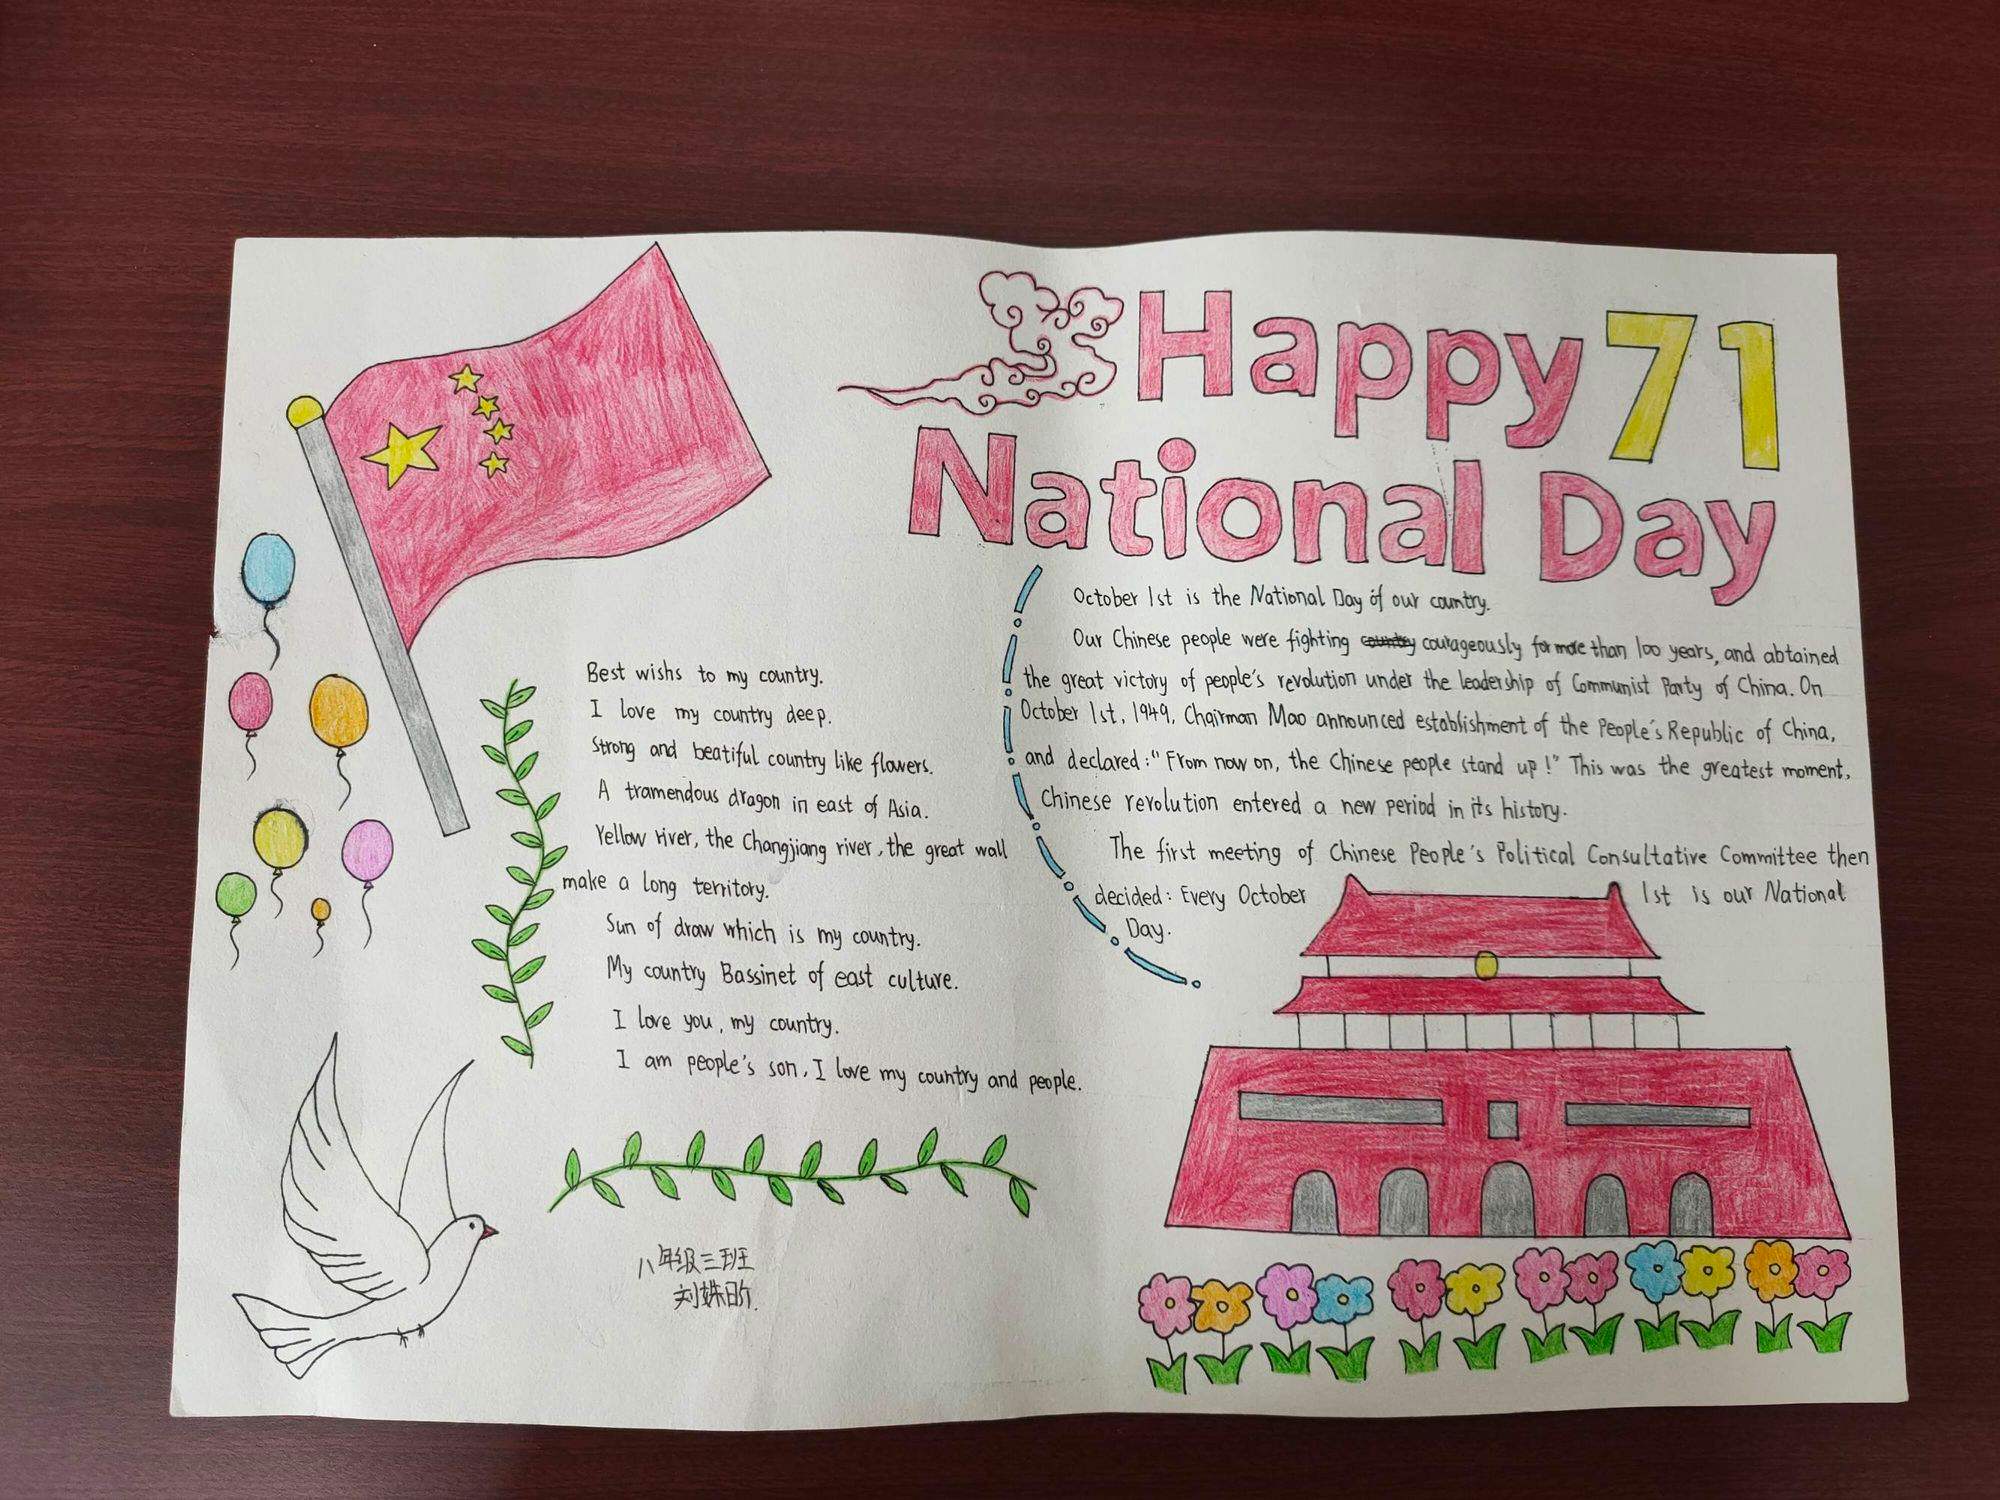 Happy 71
National Day
October 1st is the National Day of our country.
Our Chinese people were fighting country courageously for more than 100 years, and abtained
the great victory of people's revolution under the leadership of Communist Party of China. On
October 1st, 1949, Chairman Mao announced establishment of the People's Republic of China,
and declared:"From now on, the Chinese people stand up!" This was the greatest moment,
Chinese revolution entered a new period in its history.
The first meeting of Chinese People's Political Consultative Committee then
decided: Every October 1st is our National
Day.
Best wishs to my country.
I love my country deep.
Strong and beatiful country like flowers.
A tramendous dragon in east of Asia.
Yellow river, the Changjiang river, the great wall
make a long territory.
Sun of draw which is my country.
My country Bassinet of east culture.
I love you, my country.
I am people's son, I love my country and people.
八年级三班
刘姝昀